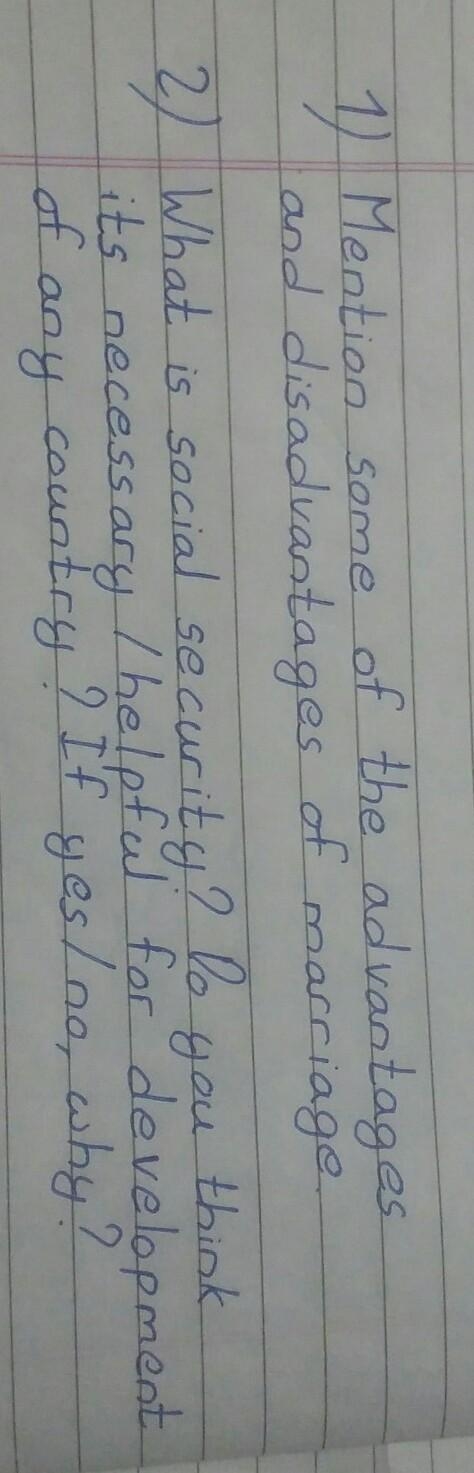 1) Mention some of the advantages
and disadvantages of marriage.
2) What is social security? Do you think
its necessary / helpful for development
of any country? If yes/no, why?